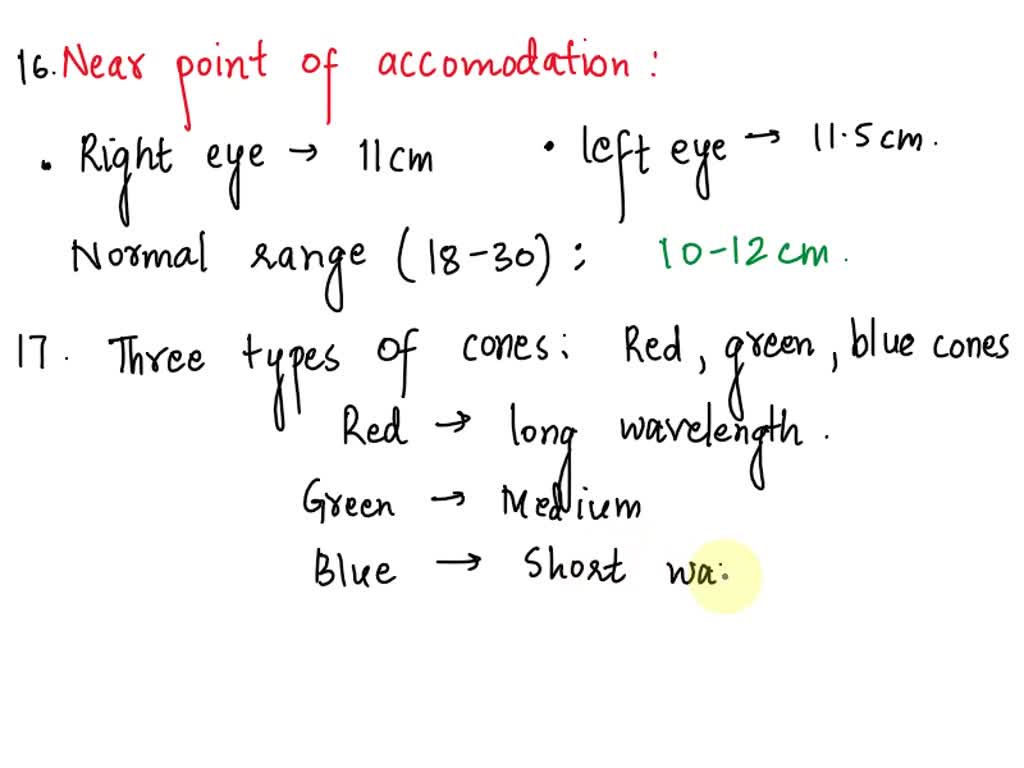 16. Near point of accomodation :
• Right eye → 11 cm • left eye → 11.5 cm.
Normal range (18-30) : 10-12 cm.
17. Three types of cones: Red, green, blue cones
Red → long wavelength.
Green → Medium
Blue → Short wa